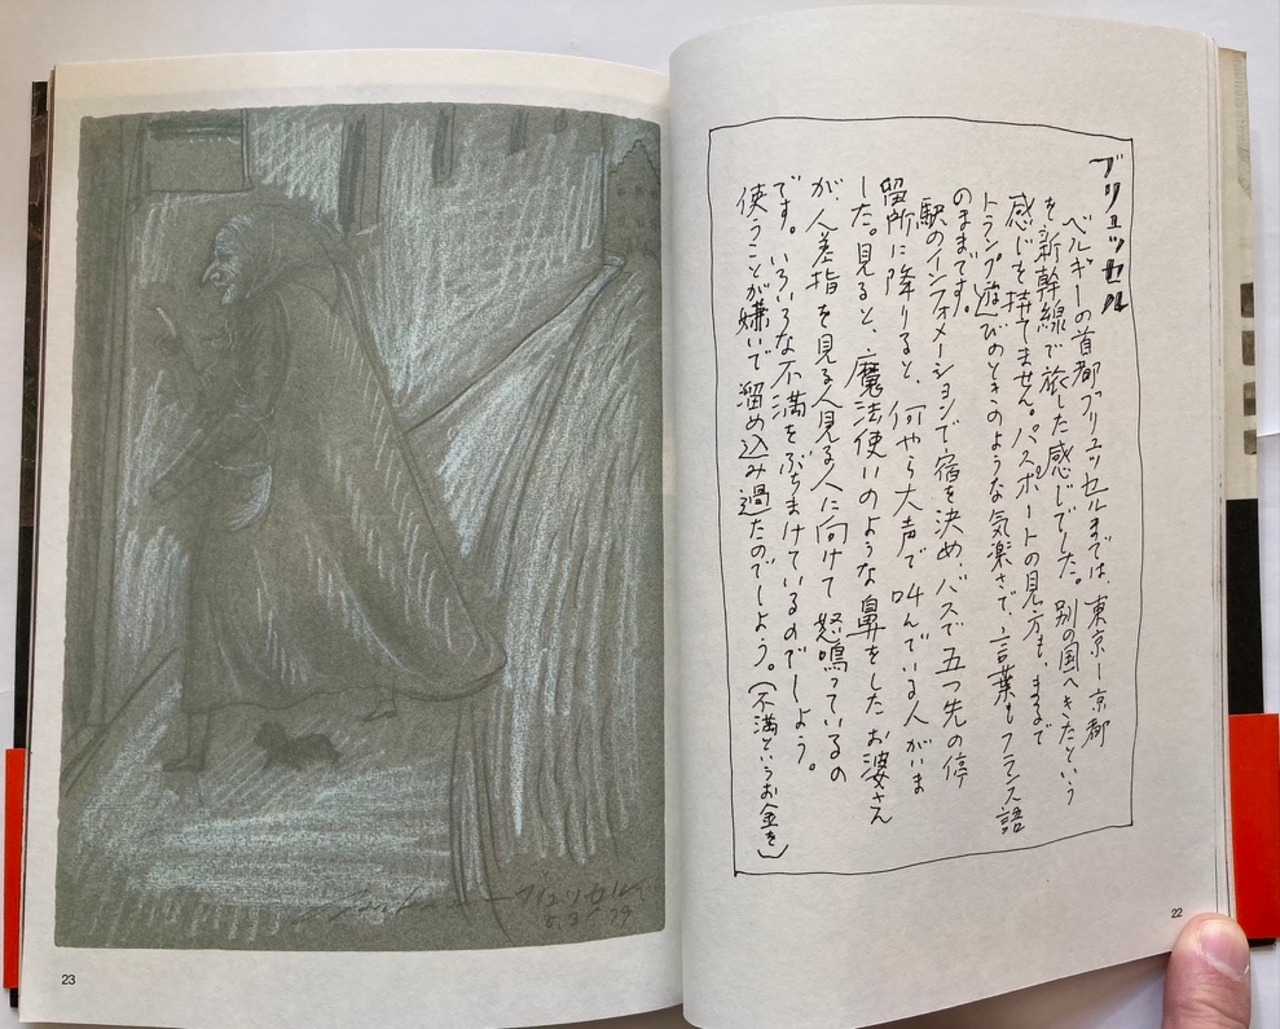 ブリュッセル
ベルギーの首都ブリュッセルまでは、東京ー京都
を新幹線で旅した感じでした。別の国へきたという
感じを持てません。パスポートの見方も、まるで
トランプ遊びのときのような気楽さで、言葉もフランス語
のままです。
駅のインフォメーションで宿を決め、バスで五つ先の停
留所に降りると、何やら大声で叫んでいる人がいま
した。見ると、魔法使いのような鼻をしたお婆さん
が、人差指を見る人見る人に向けて怒鳴っているの
です。いろいろな不満をぶちまけているのでしょう。
使うことが嫌いで溜め込み過たのでしよう。(不満というお金を)
22
8.3/79
23